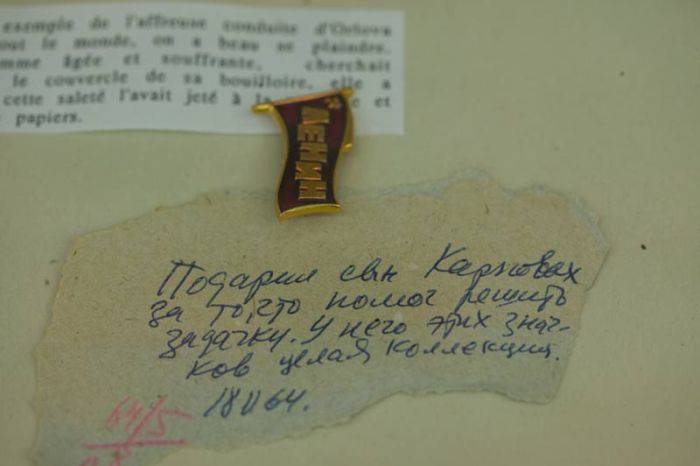 exemple de l'affreuse conduite d'Orlova
out le monde, on a beau se plaindre.
mme âgée et souffrante, cherchait
le couvercle de sa bouilloire, elle a
cette saleté l'avait jeté à la et
papiers.
ЛЕНИН
Подарил сын Карповых
за то, что помог решить
задачку. У него этих знач-
ков целая коллекция.
18 V 64.
64/5